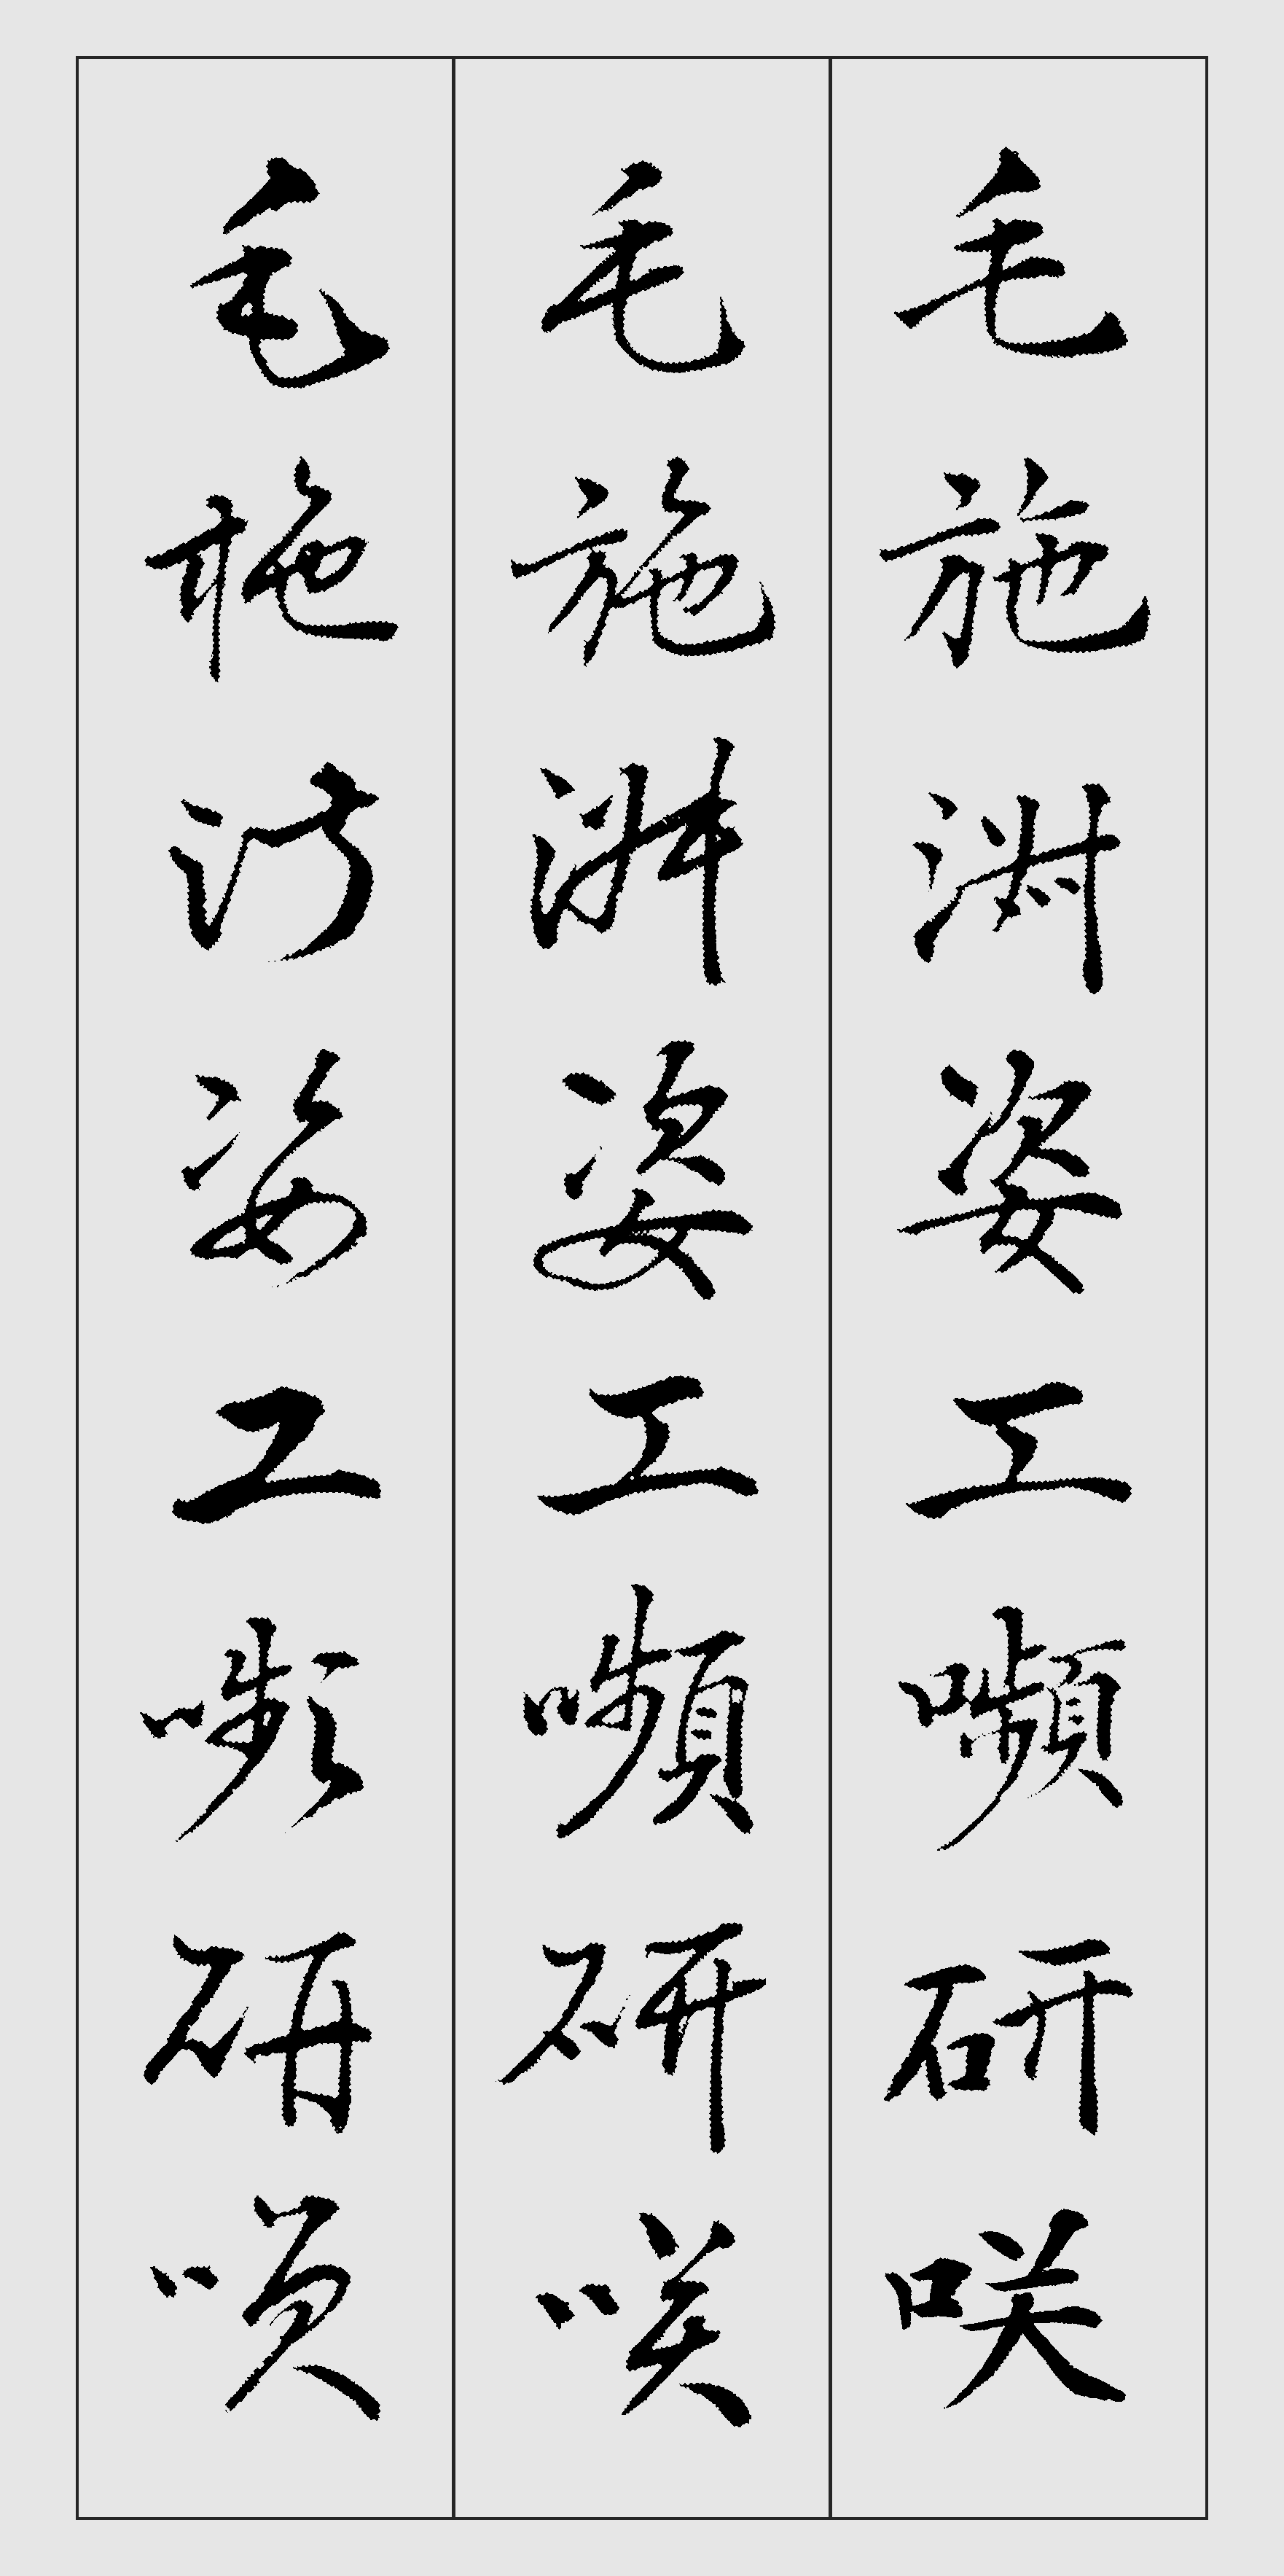 毛施淑姿工嚬研咲
毛施淑姿工嚬研咲
毛施淑姿工嚬研笑